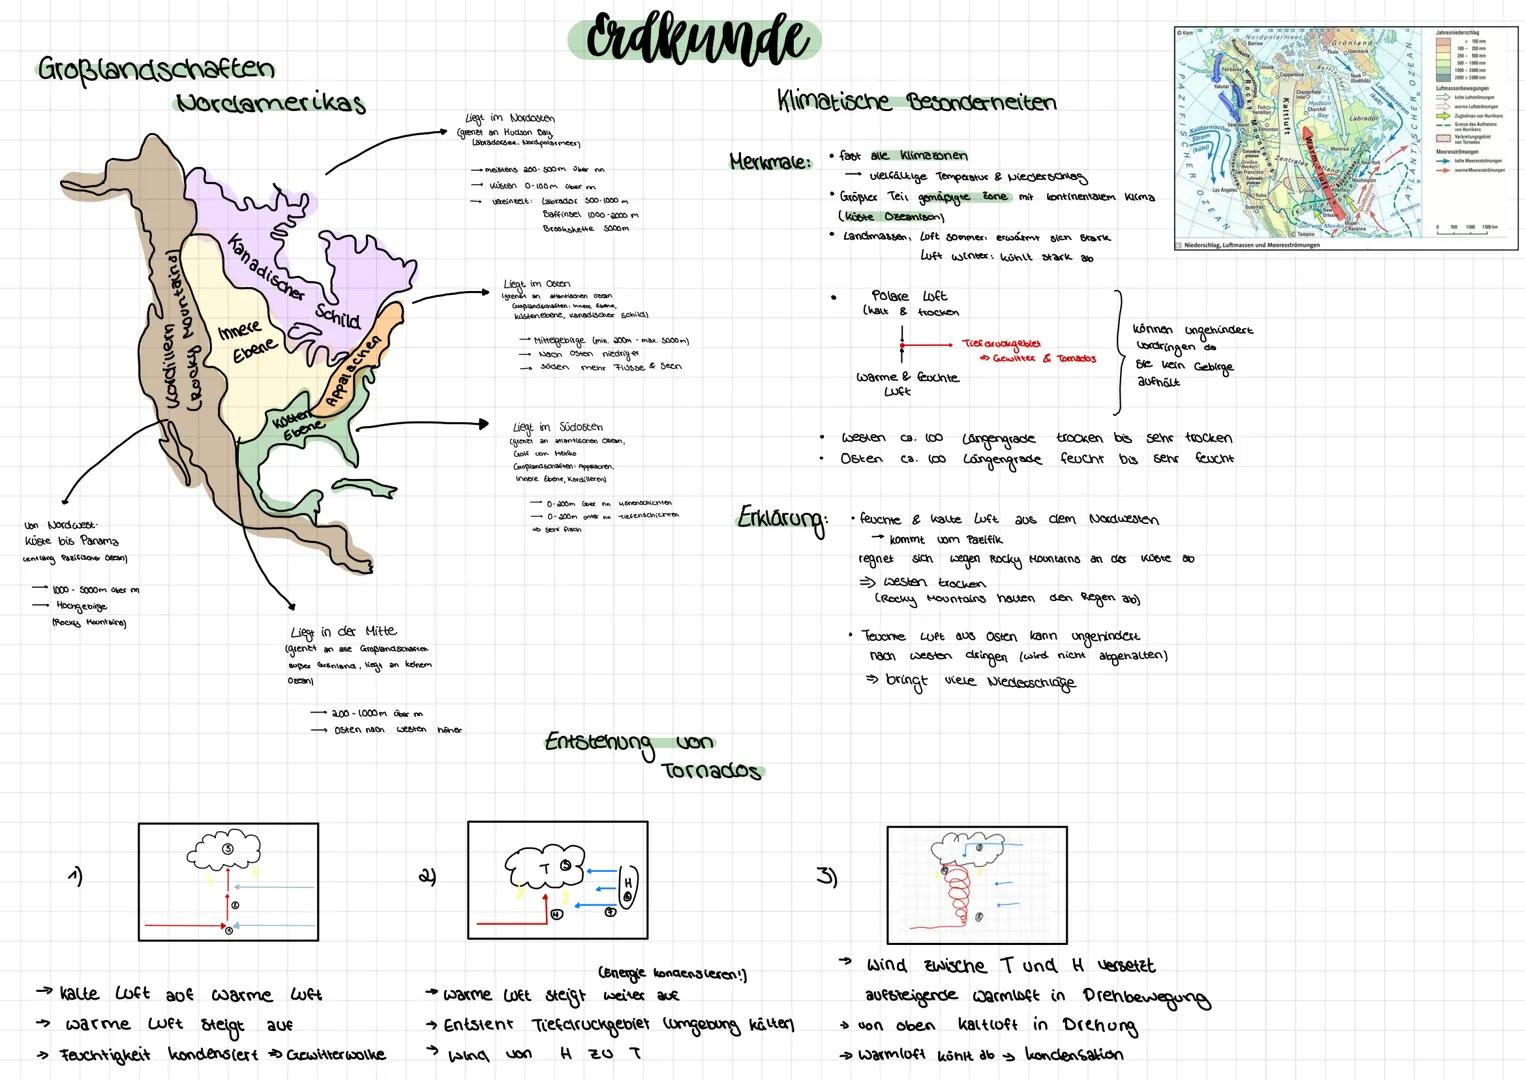 Erdkunde
Großlandschaften
Nordamerikas
Kanadischer
Schild
Kordillern
(Rocky Mountains)
Innere
Ebene
Appalachen
Küsten
Ebene
Liegt im Nordosten
(grenzt an Hudson Bay,
Labradorsee, Nordpolarmeer)
→ meistens 200-500m über nn
→ Küsten 0-100m über nn
→ vereinzelt: Labrador 500-1000m
Baffinsel 1000-2000m
Brookskette 5000m
Liegt im Osten
(grenzt an atlantischen Ozean
Großlandschaften: Innere Ebene,
Küstenebene, Kanadischer Schild)
→ Mittelgebirge (min. 200m - max. 5000m)
→ Nach Osten niedriger
→ Süden mehr Flüsse & Seen
Liegt im Südosten
(grenzt an atlantischen Ozean,
Golf von Mexiko
Großlandschaften: Appalachen,
Innere Ebene, Kordilleren)
→ 0-200m über nn Höhenschichten
→ 0-200m unter nn Tiefenschichten
⇒ sehr flach
Von Nordwest-
küste bis Panama
(entlang Pazifischer Ozean)
→ 1000-5000m über nn
→ Hochgebirge
(Rocky Mountains)
Liegt in der Mitte
(grenzt an alle Großlandschaften
außer Grönland, liegt an keinem
Ozean)
→ 200-1000m über nn
→ Osten nach Westen höher
Klimatische Besonderheiten
Merkmale:
• fast alle Klimazonen
→ vielfältige Temperatur & Niederschlag
• Größter Teil gemäßigte Zone mit kontinentalem Klima
(Küste Ozeanisch)
• Landmassen, Luft Sommer: erwärmt sich stark
Luft Winter: kühlt stark ab
• Polare Luft
(kalt & trocken
→ Tiefdruckgebiet
⇒ Gewitter & Tornados
warme & feuchte
Luft
können ungehindert
vordringen da
sie kein Gebirge
aufhält
• Westen ca. 100 Längengrade trocken bis sehr trocken
• Osten ca. 100 Längengrade feucht bis sehr feucht
Erklärung:
• feuchte & kalte Luft aus dem Nordwesten
→ kommt vom Pazifik
regnet sich wegen Rocky Mountains an der Küste ab
⇒ Westen trocken
(Rocky Mountains halten den Regen ab)
• Feuchte Luft aus Osten kann ungehindert
nach Westen dringen (wird nicht abgehalten)
⇒ bringt viele Niederschläge
© Klett
Jahresniederschlag
Luftmassenbewegungen
kalte Luftströmungen
warme Luftströmungen
Zugbahnen von Hurrikans
Grenze des Auftretens
von Hurrikans
Verbreitungsgebiet
von Tornados
Meeresströmungen
kalte Meeresströmungen
warme Meeresströmungen
0 500 1000 1500 km
PAZIFISCHER OZEAN
ATLANTISCHER OZEAN
Nordpolarmeer
Grönland
Rocky Mountains
Kaltluft
Warmluft
Hudson
Bay
Labrador
Labradorstrom
(kalt)
Kalifornischer
Strom
(kühl)
Golf von Mexiko
Niederschlag, Luftmassen und Meeresströmungen
Entstehung von
Tornados
1)
→ kalte Luft auf warme Luft
→ warme Luft steigt auf
→ Feuchtigkeit kondensiert ⇒ Gewitterwolke
2)
T
H
(Energie kondensieren!)
→ warme Luft steigt weiter auf
→ Entsteht Tiefdruckgebiet (Umgebung kälter)
→ Wind von H zu T
3)
→ Wind zwische T und H versetzt
aufsteigende Warmluft in Drehbewegung
→ von oben Kaltluft in Drehung
→ Warmluft kühlt ab → kondensation